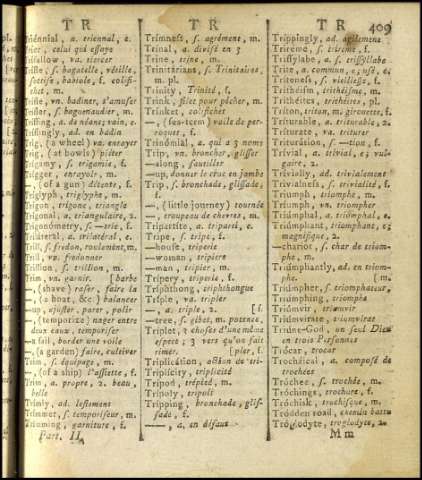 TR TR TR 409
Triennial, a. triennal, e.
Trier, celui qui essaye
Trifallow, va. tiercer
Trifle, s. bagatelle, vétille,
sotise, babiole, f. colifi-
chet, m.
Trifle, vn. badiner, s'amuser
Trifler, s. baguenaudier, m.
Trifling, a. de néant, vain, e.
Triflingly, ad. en badin
Trig, (a wheel) va. enrayer
Trig, (at bowls) piéter
Trigamy, s. trigamie, f.
Trigger, enrayoir, m.
—, (of a gun) détente, f.
Triglyph, triglyphe, m.
Trigon, trigone, triangle
Trigonal, a. triangulaire, 2.
Trigonometry, s. —trie, f.
Trilateral, a. trilatéral, e.
Trill, s. fredon, roulement, m.
Trill, vn. fredonner
Trillion, s. trillion, m.
Trim, va. garnir. [barbe
—, (shave) raser, faire la
—, (a boat, &c.) balancer
—up, ajuster, parer, polir
—, (temporize) nager entre
deux eaux, temporiser
—a sail, border une voile
—, (a garden) faire, cultiver
Trim, s. équipage, m.
—, (of a ship) l'assiette, f.
Trim, a. propre, 2. beau,
belle
Trimly, ad. lestement
Trimmer, s. temporiseur, m.
Trimming, garniture, f.
Part. II.
Trimness, s. agrément, m.
Trinal, a. divisé en 3
Trine, trine, m.
Trinitarians, s. Trinitaires,
m. pl.
Trinity, Trinité, f.
Trink, filet pour pêcher, m.
Trinket, colifichet
—, (sea-term) voile de per-
roquet, f.
Trinómial, a. qui a 3 noms
Trip, vn. broncher, glisser
—along, sautiller
—up, donner le croc en jambe
Trip, s. bronchade, glissade,
f.
—, (little journey) tournée
—, troupeau de chevres, m.
Tripartite, a. triparti, e.
Tripe, s. tripe, f.
—house, triperie
—woman, tripière
—man, tripier, m.
Tripery, triperie, f.
Tripthong, triphthongue
Triple, va. tripler
—, a. triple, 2. [f.
—tree, s. gibet, m. potence,
Triplet, 3 choses d'une même
espece; 3 vers qu'on fait
rimer. [pler, f.
Triplication, action de tri-
Triplicity, triplicité
Tripod, trépied, m.
Tripoly, tripoli
Tripping, bronchade, glis-
sade, f.
—, a. en défaut
Trippingly, ad. agilement
Trireme, s. trireme, f.
Trissyllabe, a. s. trissyllabe
Trite, a. commun, e; usé, e.
Triteness, s. vieillesse, f.
Tritheism, trithéisme, m.
Trithéites, trithéites, pl.
Triton, triton, m. girouette, f.
Triturable, a. triturable, 2.
Triturate, va. triturer
Trituration, s. —tion, f.
Trivial, a. trivial, e; vul-
gaire, 2.
Trivially, ad. trivialement
Trivialness, s. trivialité, f.
Triumph, triomphe, m.
Triumph, vn. triompher
Triumphal, a. triomphal, e.
Triumphant, triomphant, e;
magnifique, 2.
—chariot, s. char de triom-
phe, m.
Triumphantly, ad. en triom-
phe. [m.
Triumpher, s. triomphateur,
Triumphing, triomphe
Triumvir, triumvir
Triumvirate, triumvirat
Triune-God, un seul Dieu
en trois Personnes
Trocar, trocar
Trochaical, a. composé de
trochées
Trochee, s. trochée, m.
Trochings, trochure, f.
Trochisk, trochisque, m.
Trodden road, chemin battu
Troglodyte, troglodyte, 2.
M m